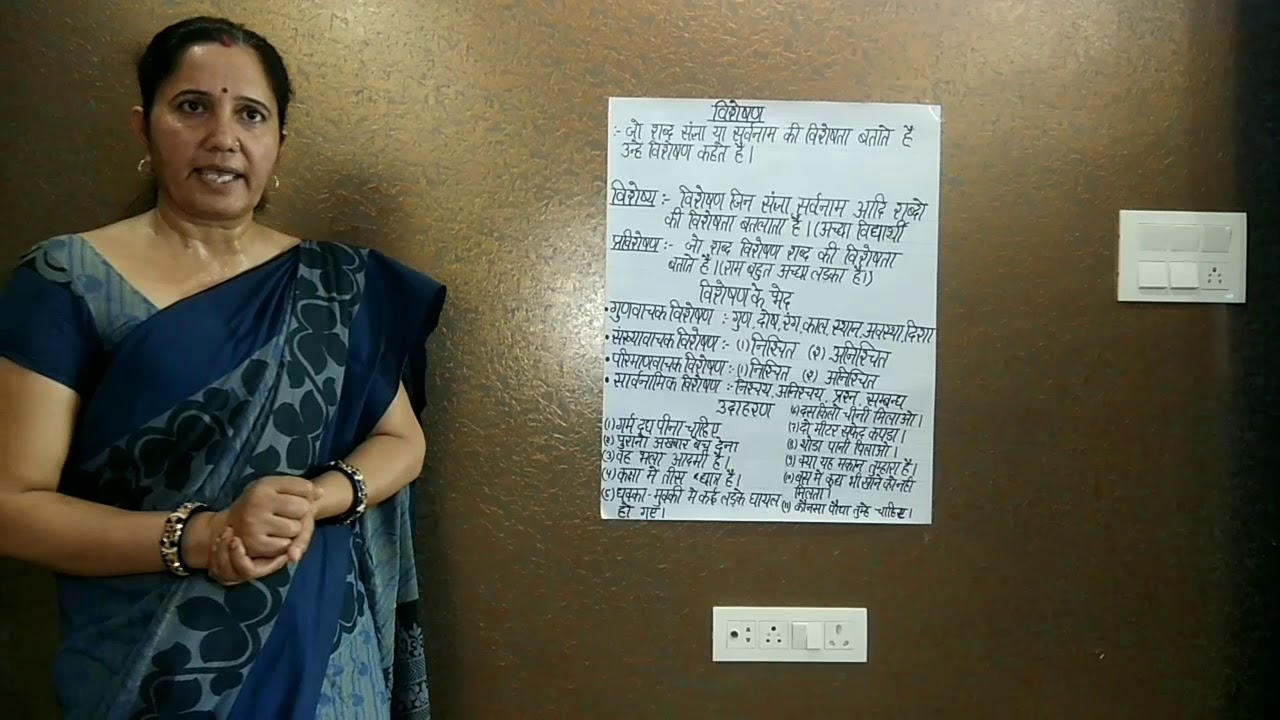 विशेषण
:- जो शब्द संज्ञा या सर्वनाम की विशेषता बताते हैं
उन्हें विशेषण कहते हैं।
विशेष्य :- विशेषण जिन संज्ञा, सर्वनाम आदि शब्दो
की विशेषता बतलाता है। (अच्छा विद्यार्थी
प्रविशेषण :- जो शब्द विशेषण शब्द की विशेषता
बताते हैं। (राम बहुत अच्छा लडका है।)
विशेषण के भेद
• गुणवाचक विशेषण : गुण, दोष, रंग, काल, स्थान, अवस्था, दिशा
• संख्यावाचक विशेषण :- (1) निश्चित (२) अनिश्चित
• परिमाणवाचक विशेषण :- (1) निश्चित (२) अनिश्चित
• सार्वनामिक विशेषण :- निश्चय, अनिश्चय, प्रश्न, सम्बन्ध
उदाहरण
(1) गर्म दूध पीना चाहिए
(२) पुराना अखबार बेच देना
(3) वह भला आदमी है।
(4) कक्षा में तीस छात्र है।
(5) धक्का-मुक्की में कई लड़के घायल
हो गए।
(6) दस किलो चीनी मिलाओ।
(7) दो मीटर सफेद कपड़ा।
(8) थोडा पानी पिलाओ।
(9) क्या यह मकान तुम्हारा है।
(10) बस में कुछ भी खाने को नही
मिलता।
(11) कौनसा पौधा तुम्हे चाहिए।